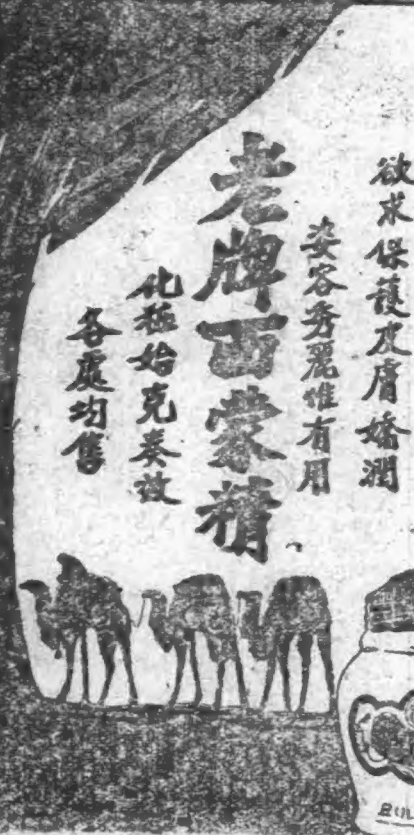 欲求保護皮膚嬌潤
姿容秀麗惟有用
老牌西蒙精
化粧始克奏效
各處均售